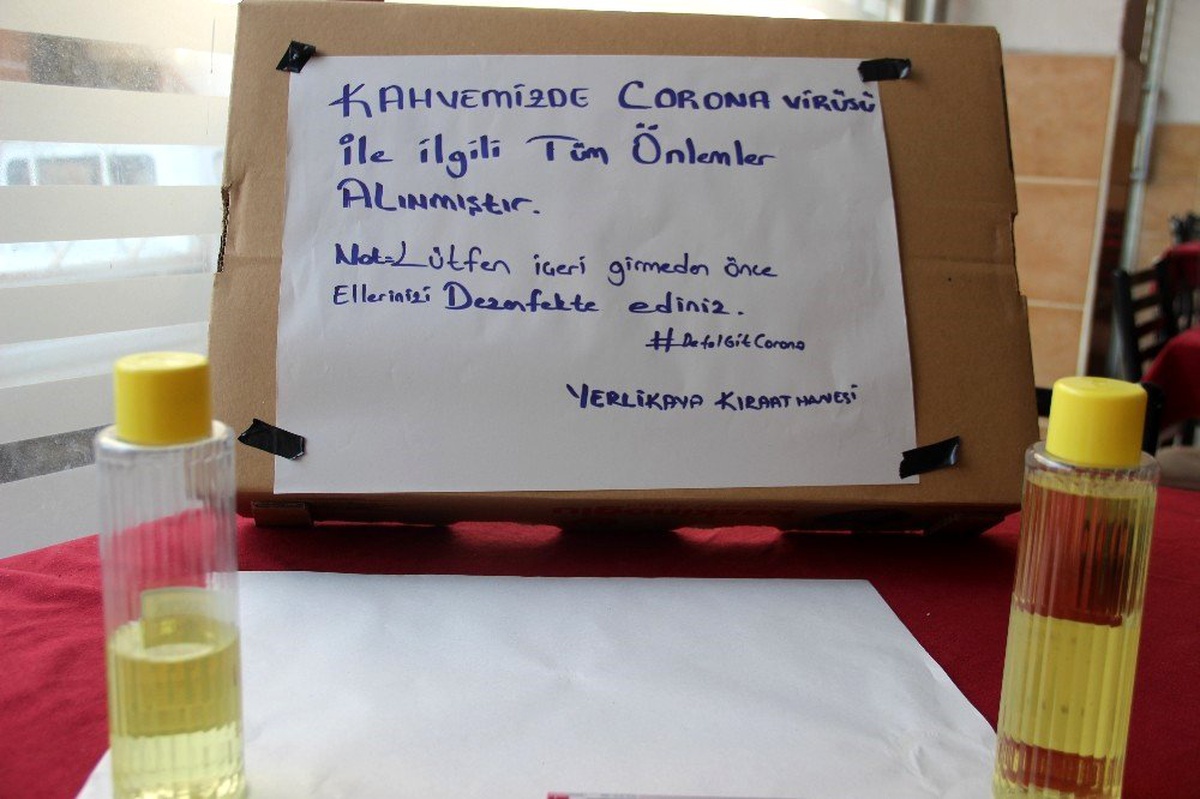 KAHVEMİZDE CORONA VİRÜSÜ
İle ilgili Tüm Önlemler
ALINMIŞTIR.
Not=Lütfen içeri girmeden önce
Ellerinizi Dezenfekte ediniz.
#DefolGitCorona
YERLİKAYA KIRAATHANESİ